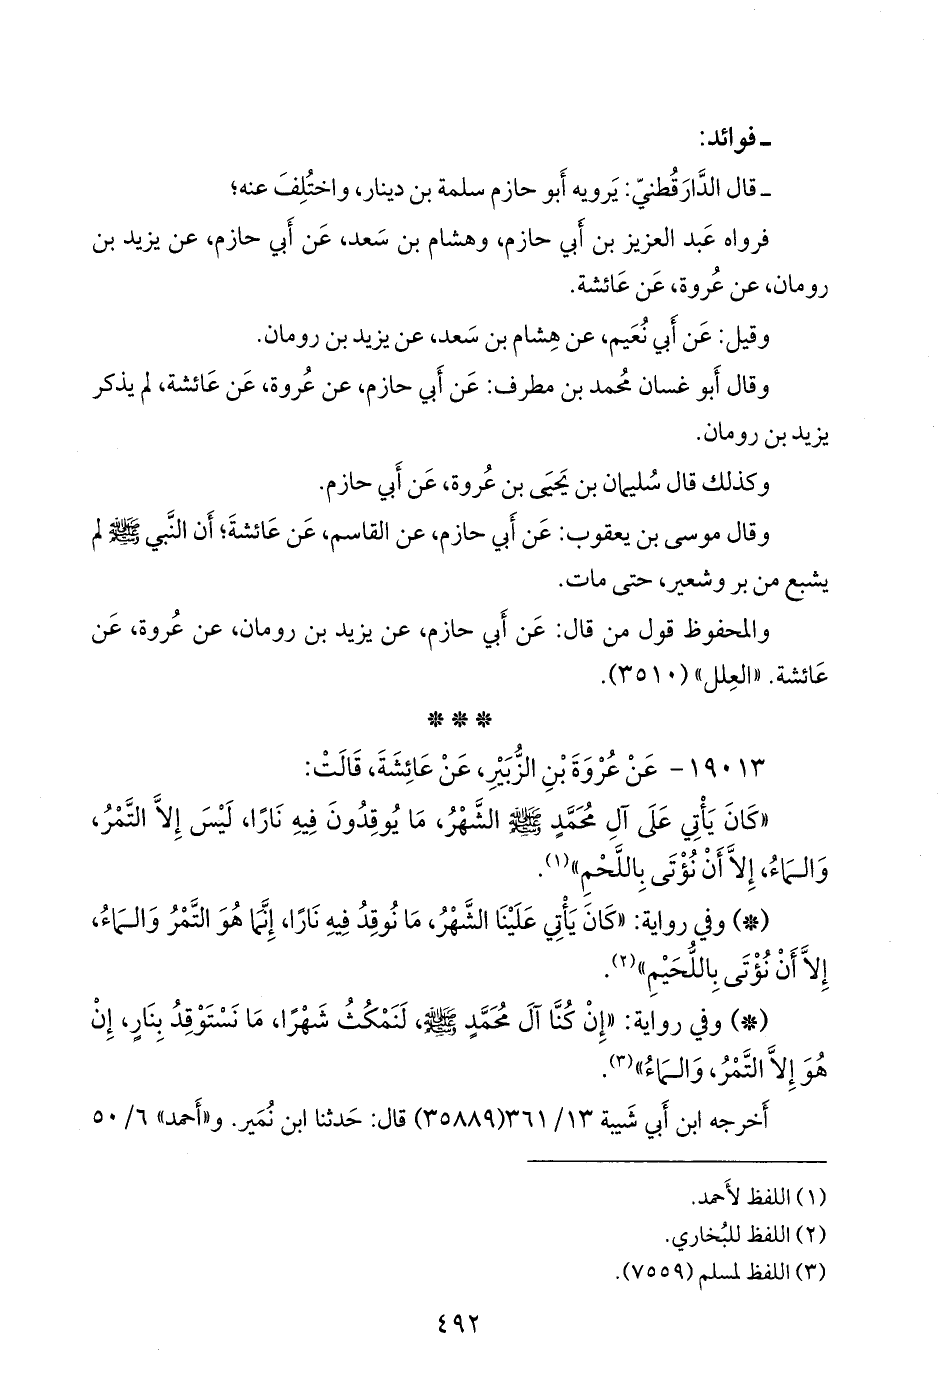 ـ فوائد:
ـ قال الدَّارَقُطنيّ: يَرويه أَبو حازم سلمة بن دينار، واختُلِفَ عنه؛
فرواه عَبد العزيز بن أَبي حازم، وهشام بن سَعد، عَن أَبي حازم، عن يزيد بن
رومان، عن عُروة، عَن عَائشة.
وقيل: عَن أَبي نُعَيم، عن هِشام بن سَعد، عن يزيد بن رومان.
وقال أَبو غسان مُحمد بن مطرف: عَن أَبي حازم، عن عُروة، عَن عَائشة، لم يذكر
يزيد بن رومان.
وكذلك قال سُليمان بن يَحيَى بن عُروة، عَن أَبي حازم.
وقال موسى بن يعقوب: عَن أَبي حازم، عن القاسم، عَن عَائشةَ؛ أَن النَّبي ﷺ لم
يشبع من بر وشعير، حتى مات.
والمحفوظ قول من قال: عَن أَبي حازم، عن يزيد بن رومان، عن عُروة، عَن
عَائشة. «العِلل» (٣٥١٠).
* * *
١٩٠١٣ - عَنْ عُرْوَةَ بْنِ الزُّبَيْرِ، عَنْ عَائِشَةَ، قَالَتْ:
«كَانَ يَأْتِي عَلَى آلِ مُحَمَّدٍ ﷺ الشَّهْرُ، مَا يُوقِدُونَ فِيهِ نَارًا، لَيْسَ إِلاَّ التَّمْرُ،
وَالـمَاءُ، إِلاَّ أَنْ نُؤْتَى بِاللَّحْمِ»(١).
(*) وفي رواية: «كَانَ يَأْتِي عَلَيْنَا الشَّهْرُ، مَا نُوقِدُ فِيهِ نَارًا، إِنَّمَا هُوَ التَّمْرُ وَالـمَاءُ،
إِلاَّ أَنْ نُؤْتَى بِاللُّحَيْمِ»(٢).
(*) وفي رواية: «إِنْ كُنَّا آلَ مُحَمَّدٍ ﷺ، لَنَمْكُثُ شَهْرًا، مَا نَسْتَوْقِدُ بِنَارٍ، إِنْ
هُوَ إِلاَّ التَّمْرُ، وَالـمَاءُ»(٣).
أَخرجه ابن أَبي شَيبة ١٣/ ٣٦١(٣٥٨٨٩) قال: حَدثنا ابن نُمَير. و«أَحمد» ٦/ ٥٠
(١) اللفظ لأَحمد.
(٢) اللفظ للبُخاري.
(٣) اللفظ لمسلم (٧٥٥٩).
٤٩٢